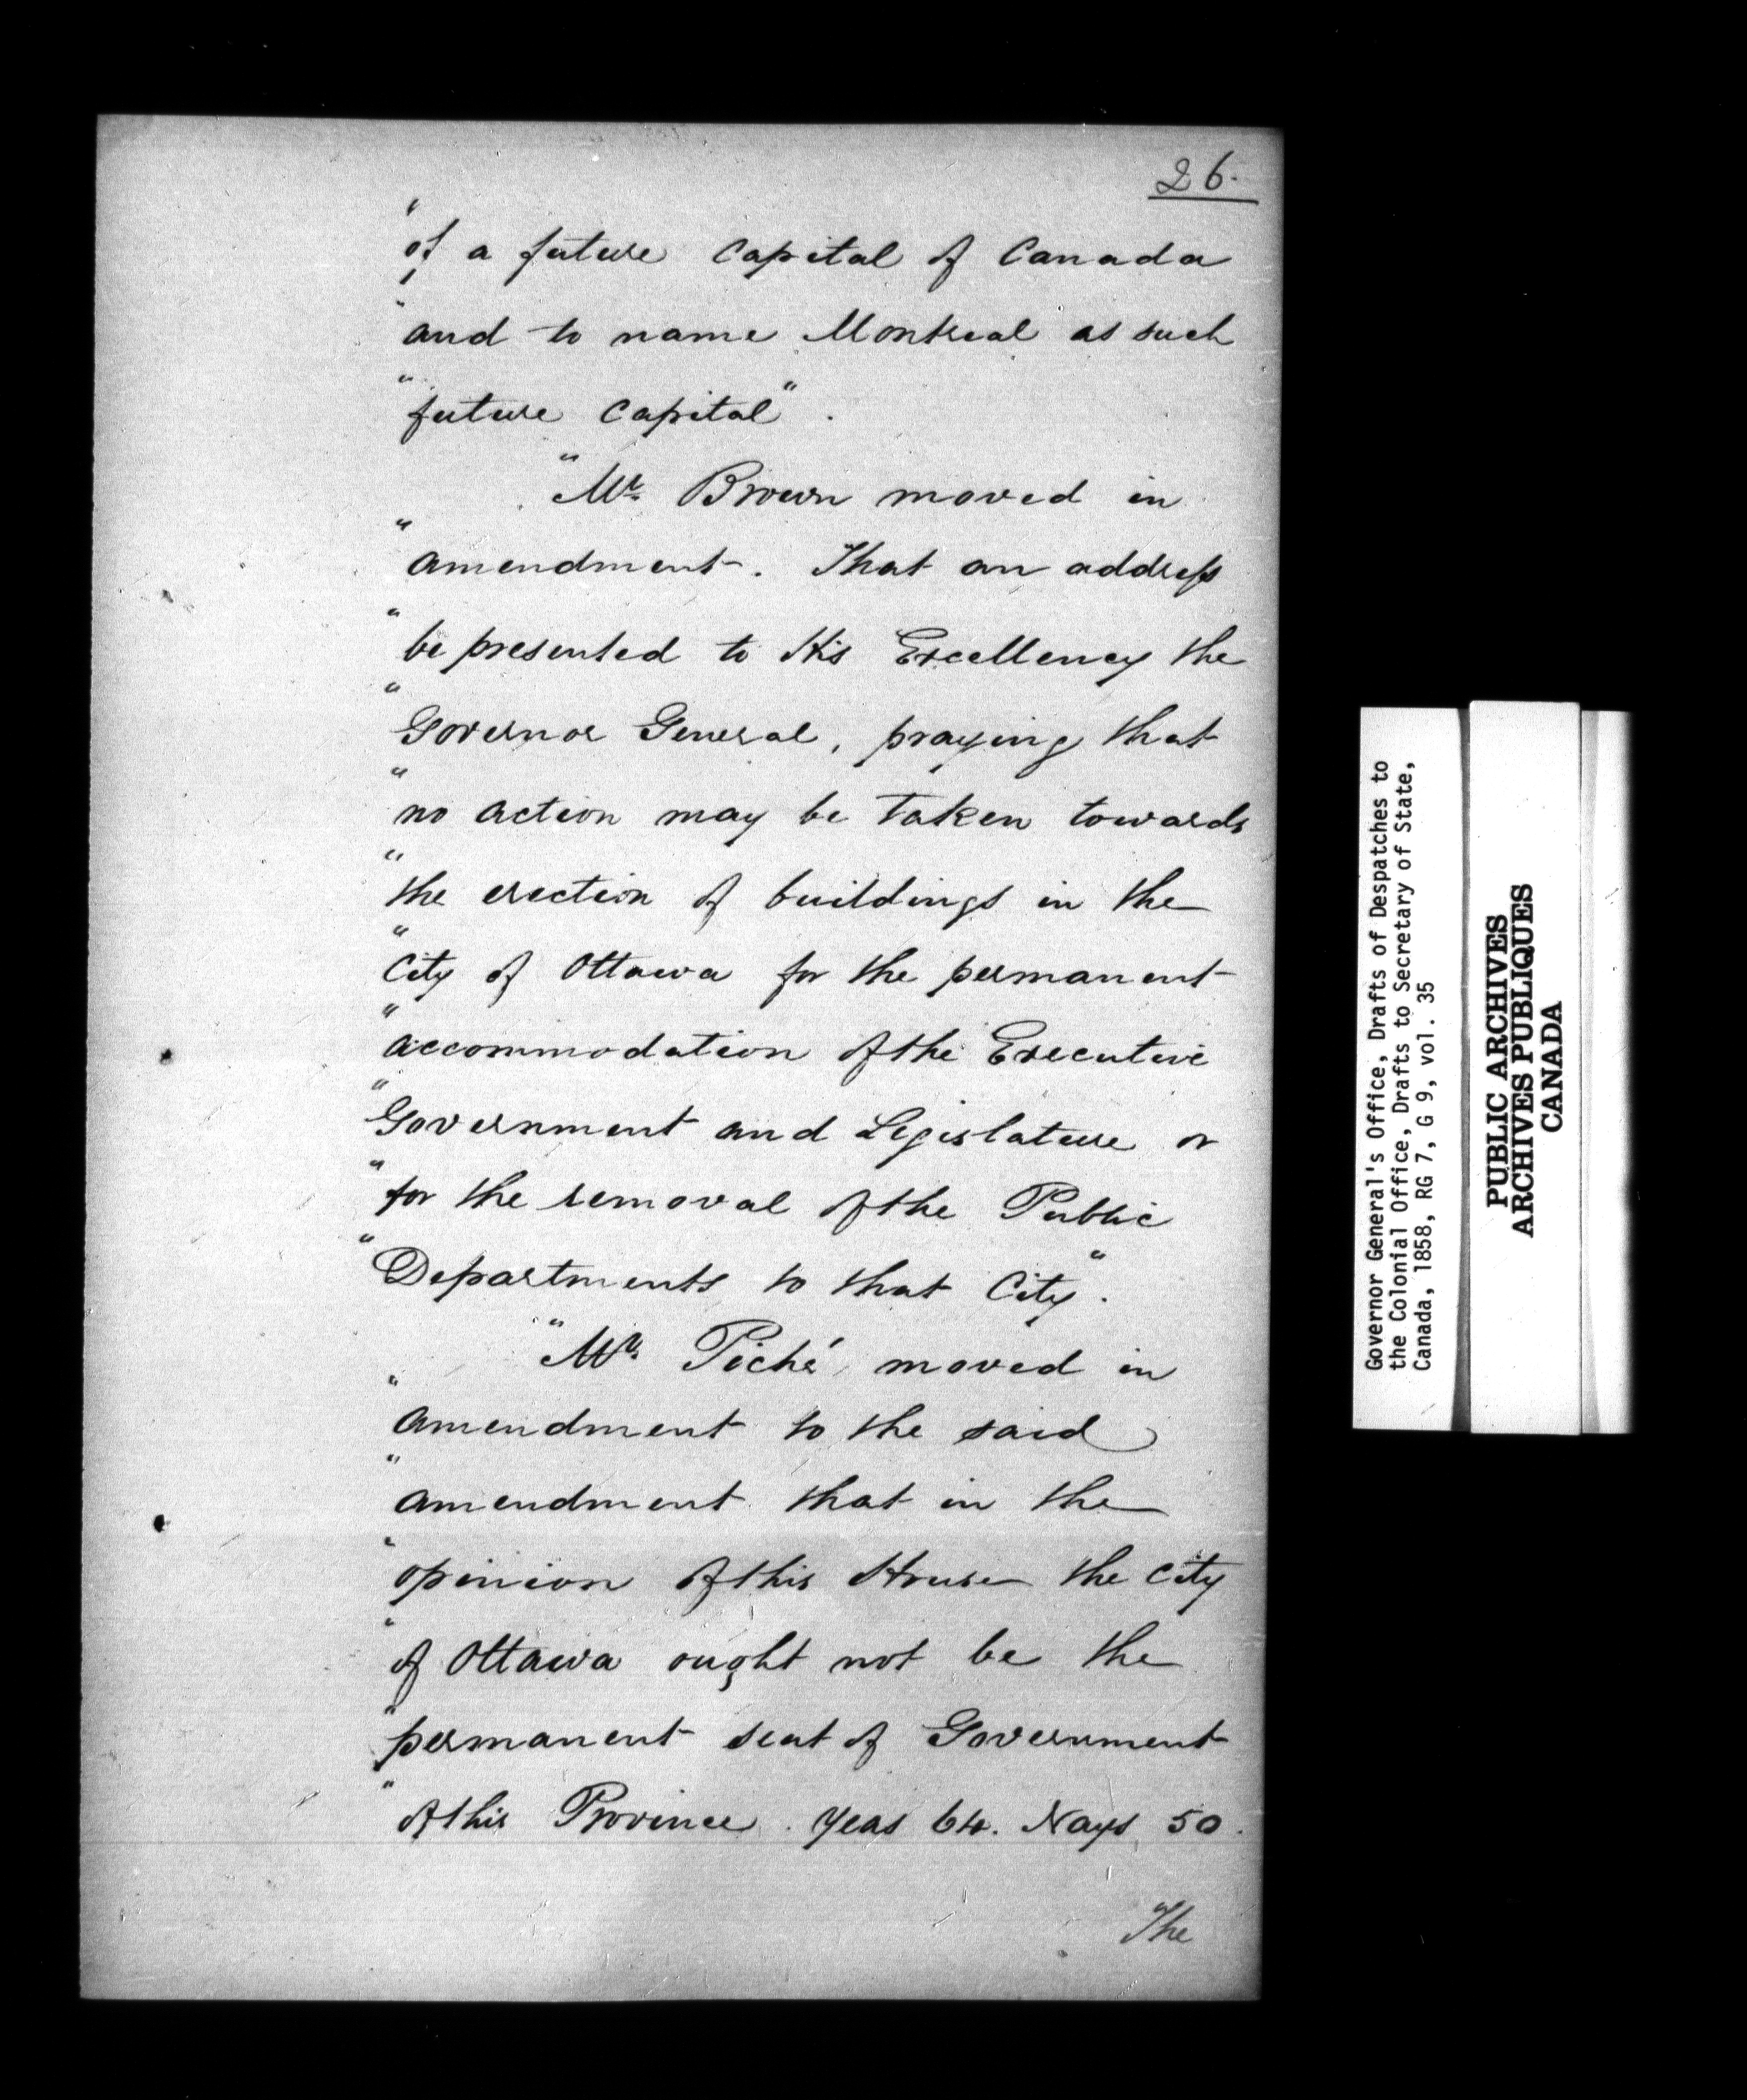 26.
"of a future Capital of Canada
"and to name Montreal as such
"future Capital".
"Mr. Brown moved in
"amendment. That an address
"be presented to His Excellency the
"Governor General, praying that
"no action may be taken towards
"the erection of buildings in the
"City of Ottawa for the permanent
"accommodation of the Executive
"Government and Legislature or
"for the removal of the Public
"Departments to that City".
"Mr. Piché moved in
"amendment to the said
"amendment that in the
"opinion of this House the City
"of Ottawa ought not be the
"permanent seat of Government
"of this Province. Yeas 64. Nays 50.
The
Governor General's Office, Drafts of Despatches to
the Colonial Office, Drafts to Secretary of State,
Canada, 1858, RG 7, G 9, vol. 35
PUBLIC ARCHIVES
ARCHIVES PUBLIQUES
CANADA